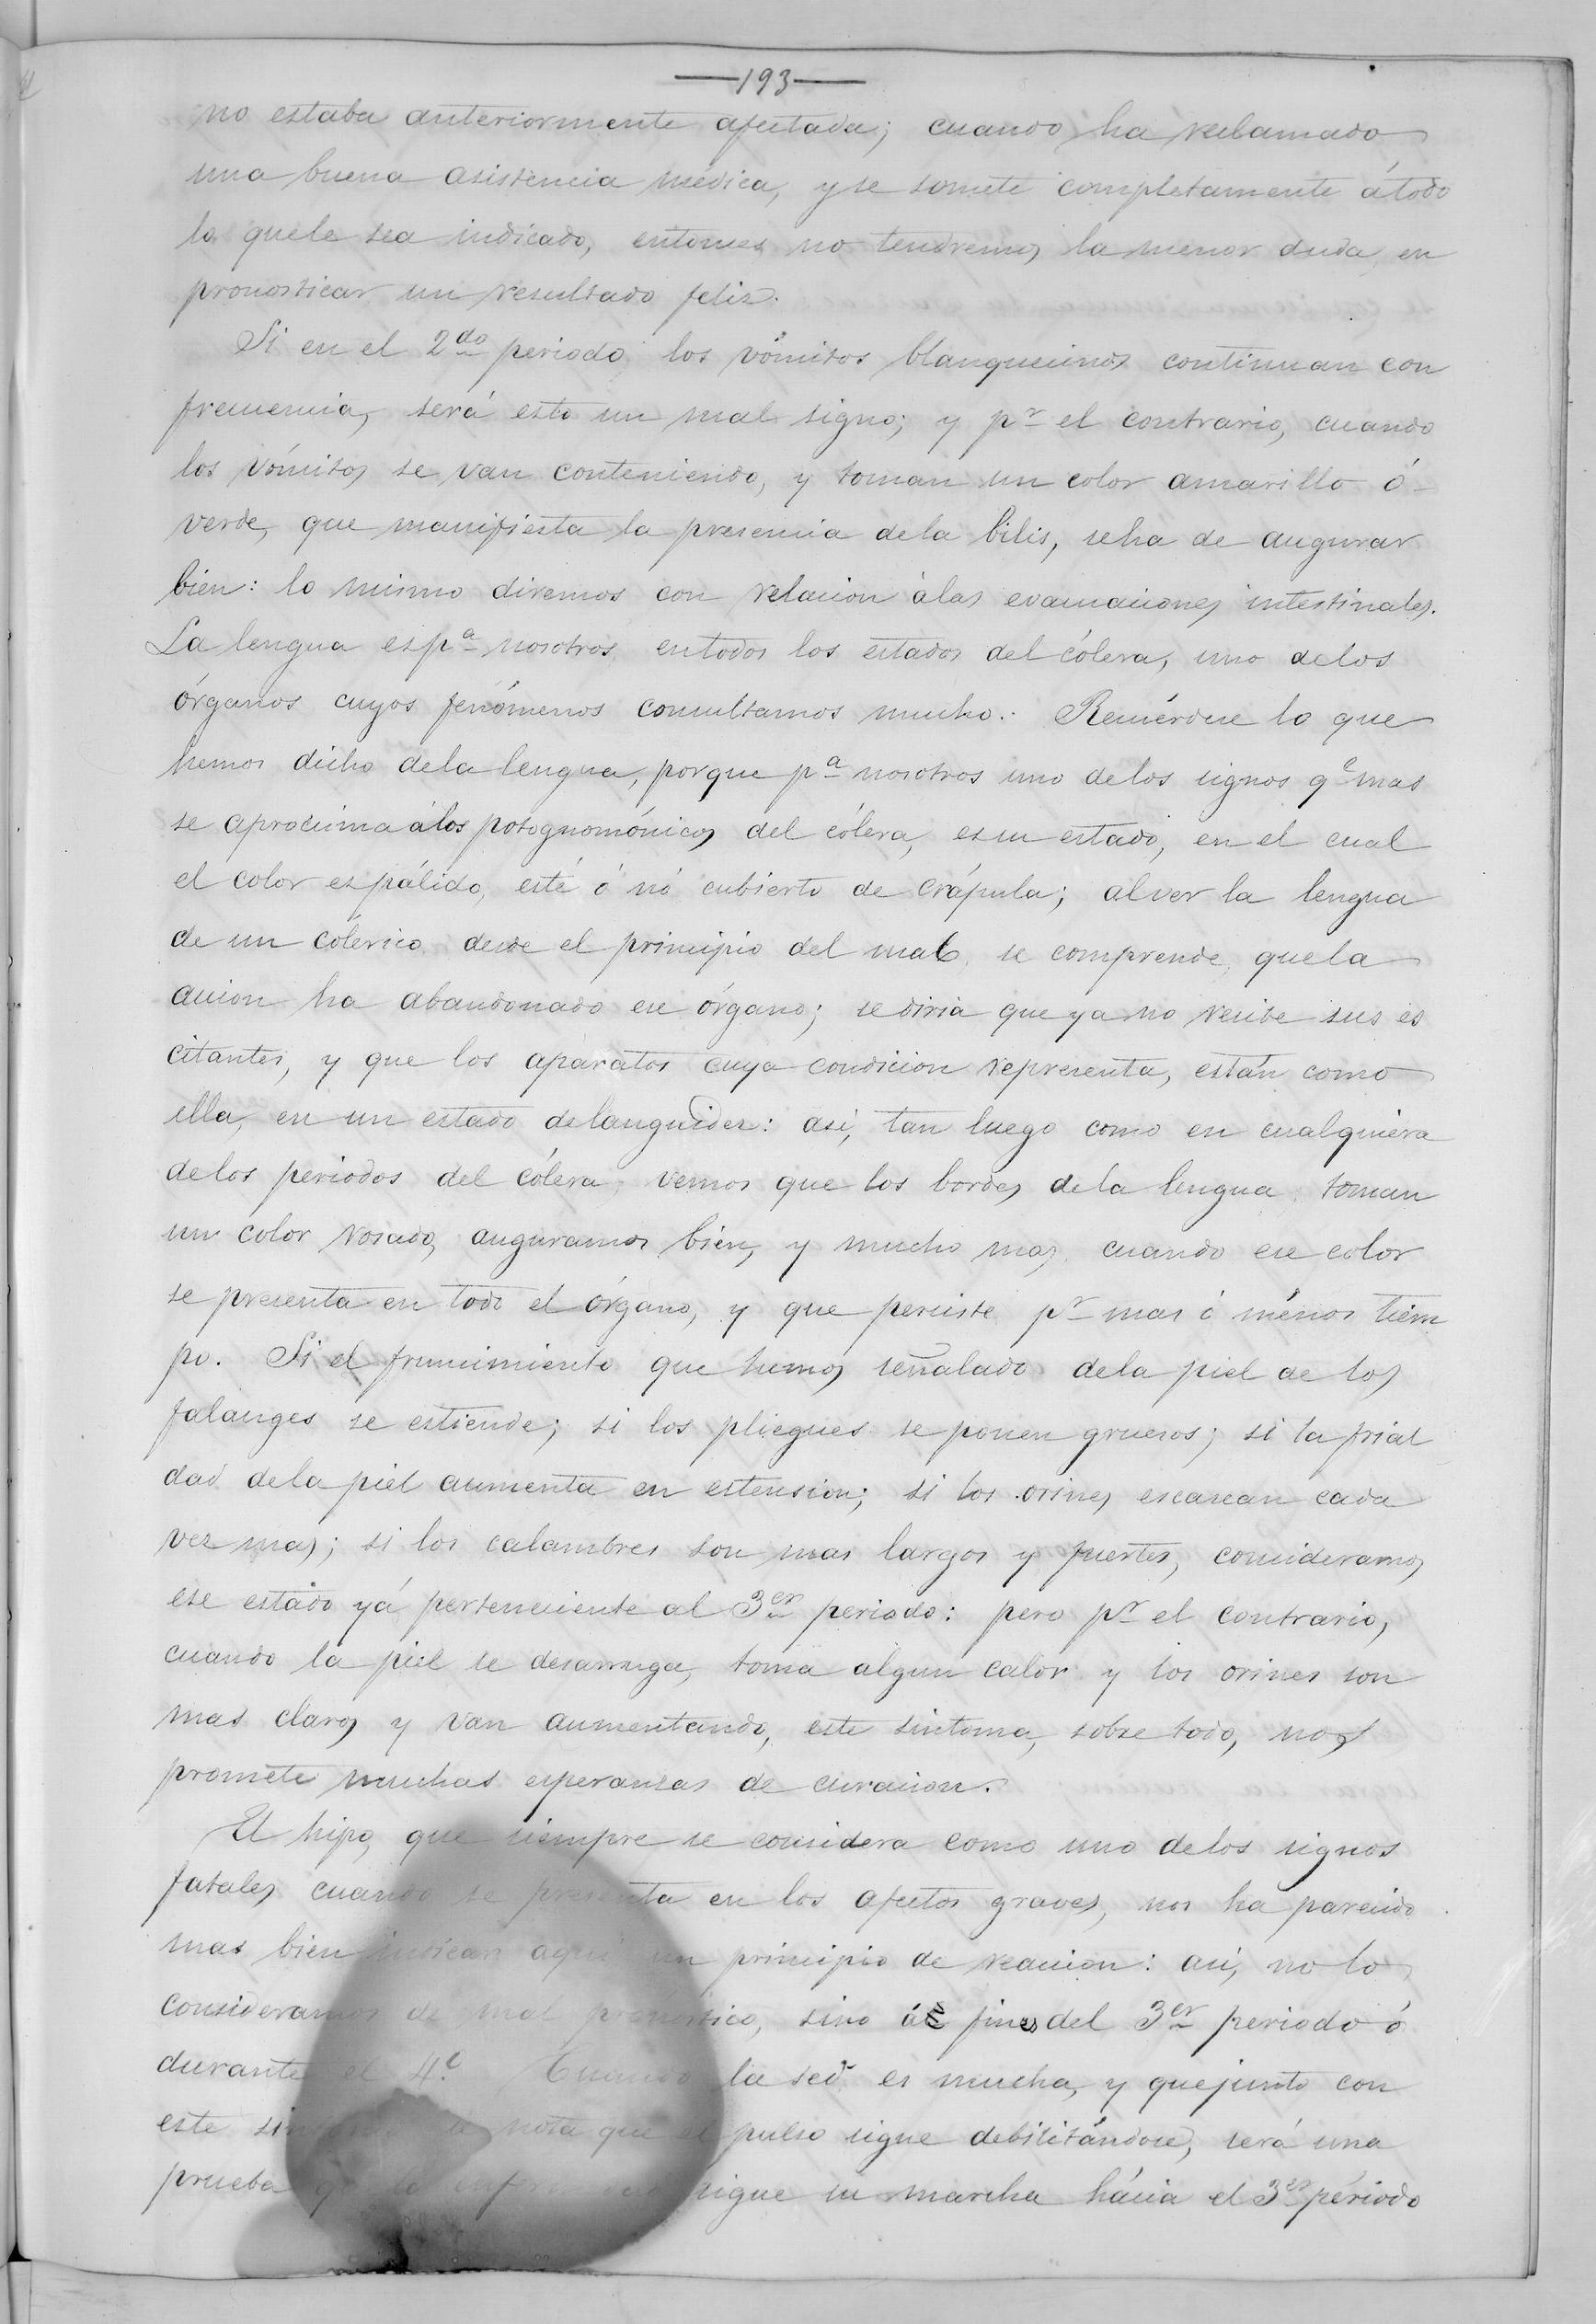 —193—
no estaba anteriormente afectada; cuando ha reclamado
una buena asistencia médica, y se somete completamente á todo
lo que le sea indicado, entonces no tendremos la menor duda en
pronosticar un resultado felis.
Si en el 2do periodo los vómitos blanquecinos continuan con
frecuencia, será esto un mal signo; y pr el contrario, cuando
los vómitos se van conteniendo, y toman un color amarillo ó
verde, que manifiesta la presencia de la bilis, se ha de augurar
bien: lo mismo diremos con relacion à las evacuaciones intestinales.
La lengua es pa nosotros en todos los estados del cólera, uno de los
órganos cuyos fenómenos consultamos mucho. Recuérdese lo que
hemos dicho de la lengua, porque pa nosotros uno de los signos qe mas
se aprocsima á los potognomónicos del cólera, es su estado, en el cual
el color es pálido, esté ó nó cubierto de crápula; al ver la lengua
de un colérico desde el principio del mal se comprende que la
accion ha abandonado ese órgano; se diria que ya no recibe sus es
citantes, y que los aparatos cuya condicion representa, están como
ella, en un estado de languidez: asi, tan luego como en cualquiera
de los periodos del cólera vemos que los bordes de la lengua toman
un color rosado, auguramos bien, y mucho mas cuando ese color
se presenta en todo el órgano, y que persiste pr mas ó ménos tiem
po. Si el fruncimiento que hemos señalado de la piel de los
falanges se estiende; si los pliegues se ponen gruesos; si la frial
dad de la piel aumenta en estension; si los orines escasean cada
vez mas; si los calambres son mas largos y fuertes, consideramos
ese estado yá perteneciente al 3er periodo: pero pr el contrario,
cuando la piel se desarruga, toma algun calor y los orines son
mas claros y van aumentando, este sintoma, sobre todo, nos
promete muchas esperanzas de curacion.
El hipo, que siempre se considera como uno de los signos
fatales cuando se presenta en los afectos graves, nos ha parecido
mas bien indicar aqui un principio de reaccion: asi, no lo
consideramos de mal pronóstico, sino á fines del 3er periodo ó
durante el 4º Cuando la sed es mucha, y que junto con
este se nota que el pulso sigue debilitándose, será una
prueba sigue su marcha hácia el 3er período